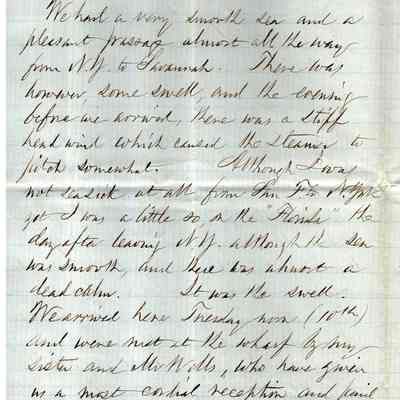 We had a very smooth sea and a
pleasant passage almost all the way
from N.Y. to Savannah. There was
however some swell, and the evening
before we arrived, there was a stiff
head wind which caused the steamer to
pitch somewhat. Although I was
not seasick at all from San F. to N.York
yet I was a little so, on the "Florida" the
day after leaving N.Y. although the sea
was smooth, and there was almost a
dead calm. It was the swell.
We arrived here Tuesday noon (10th)
and were met at the wharf by my
sister and Mr Wells, who have given
us a most cordial reception and